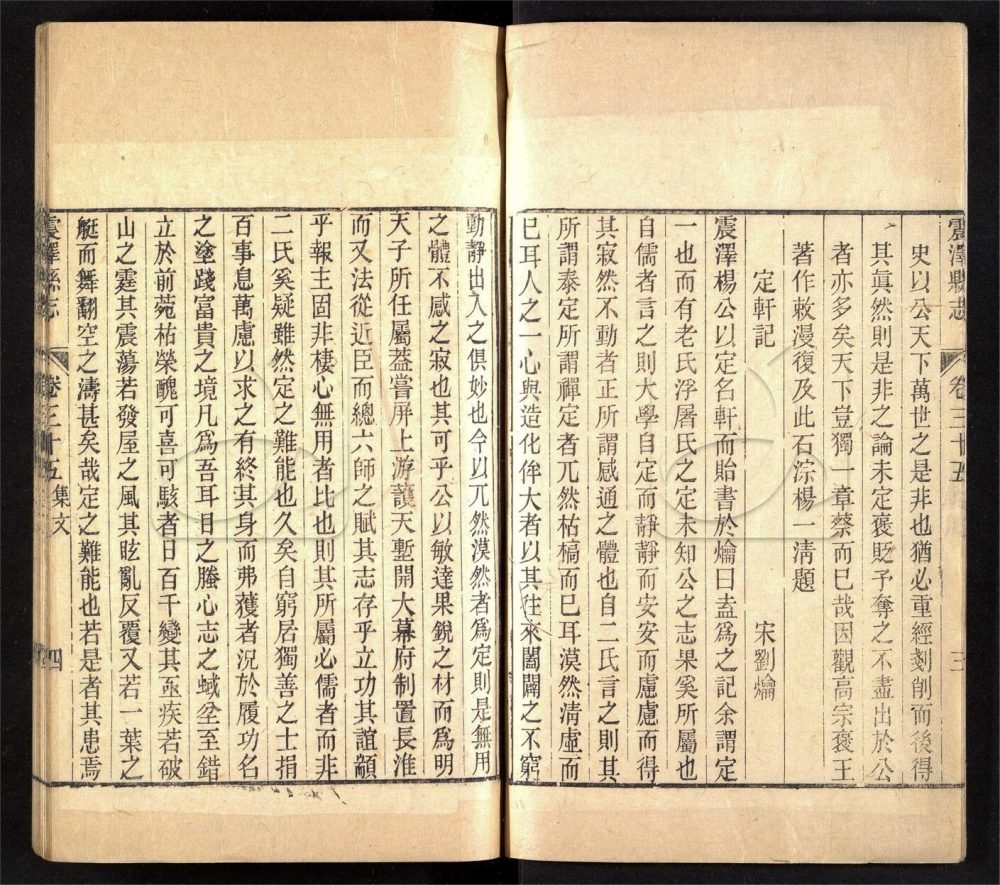 震澤縣志　卷三十五　三
史以公天下萬世之是非也猶必重經刻削而後得
其眞然則是非之論未定褒貶予奪之不盡出於公
者亦多矣天下豈獨一章蔡而已哉因觀高宗褒王
著作敕漫復及此石淙楊一清題
定軒記　宋劉爚
震澤楊公以定名軒而貽書於爚曰盍爲之記余謂定
一也而有老氏浮屠氏之定未知公之志果奚所屬也
自儒者言之則大學自定而靜靜而安安而慮慮而得
其寂然不動者正所謂感通之體也自二氏言之則其
所謂泰定所謂禪定者兀然枯槁而已耳漠然清虛而
已耳人之一心與造化侔大者以其往來闔闢之不窮
動靜出入之俱妙也今以兀然漠然者爲定則是無用
之體不感之寂也其可乎公以敏達果銳之材而爲明
天子所任屬葢嘗屏上游護天塹開大幕府制置長淮
而又法從近臣而總六師之賦其志存乎立功其誼顓
乎報主固非棲心無用者比也則其所屬必儒者而非
二氏奚疑雖然定之難能也久矣自窮居獨善之士捐
百事息萬慮以求之有終其身而弗獲者況於履功名
之塗踐富貴之境凡爲吾耳目之塍心志之蜮坌至錯
立於前菀枯榮醜可喜可駭者日百千變其亟疾若破
山之霆其震蕩若發屋之風其眩亂反覆又若一葉之
艇而舞翻空之濤甚矣哉定之難能也若是者其患焉
震澤縣志　卷三十五　集文　四